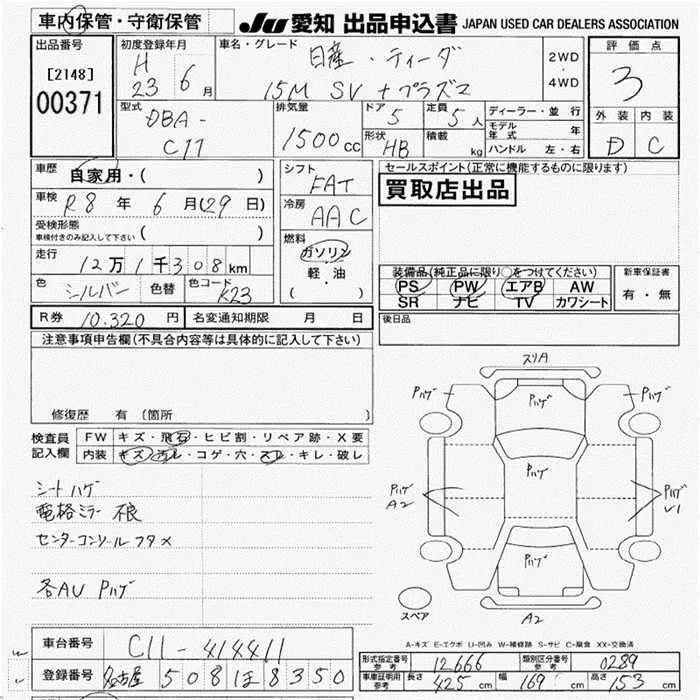 車内保管・守衛保管
JU 愛知 出品申込書 JAPAN USED CAR DEALERS ASSOCIATION
出品番号
[2148]
00371
初度登録年月
H
23 6 月
車名・グレード
日産・ティーダ
15M SV+プラズマ
2WD
・
4WD
評価点
3
外装 内装
D C
型式
DBA-
C11
排気量
1500 cc
ドア
5
定員
5人
形状
HB
積載
kg
ディーラー・並行
モデル年式 年
ハンドル 左・右
車歴
自家用・( )
車検
R8年 6月(29日)
受検形態
車検付きのみ記入して下さい ( )
走行
12万1千308km
色
シルバー
色替
色コード
K23
シフト
FAT
冷房
AAC
燃料
ガソリン
軽・油
( )
セールスポイント(正常に機能するものに限ります)
買取店出品
装備品(純正品に限り○をつけてください)
PS PW エアB AW
SR ナビ TV カワシート
新車保証書
有・無
R券 10.320 円
名変通知期限 月 日
後日品
注意事項申告欄(不具合内容等は具体的に記入して下さい)
修復歴 有 〔箇所 〕
検査員
記入欄
FW キズ・飛石・ヒビ割・リペア跡・X要
内装 キズ・汚レ・コゲ・穴・スレ・キレ・破レ
シートハゲ
電格ミラー不良
センターコンソールフタ×
各AU Pハゲ
スリA
Pハゲ
Pハゲ
Pハゲ
Pハゲ
A2
Pハゲ
Pハゲ
U1
Pハゲ
スペア
A2
A-キズ E-エクボ U-凹み W-補修跡 S-サビ C-腐食 XX-交換済
車台番号 C11-414411
登録番号 名古屋 508 ほ 8350
形式指定番号
参考
12666
類別区分番号
参考
0289
車庫証明用
参考
長さ 425 cm
幅 169 cm
高さ 153 cm